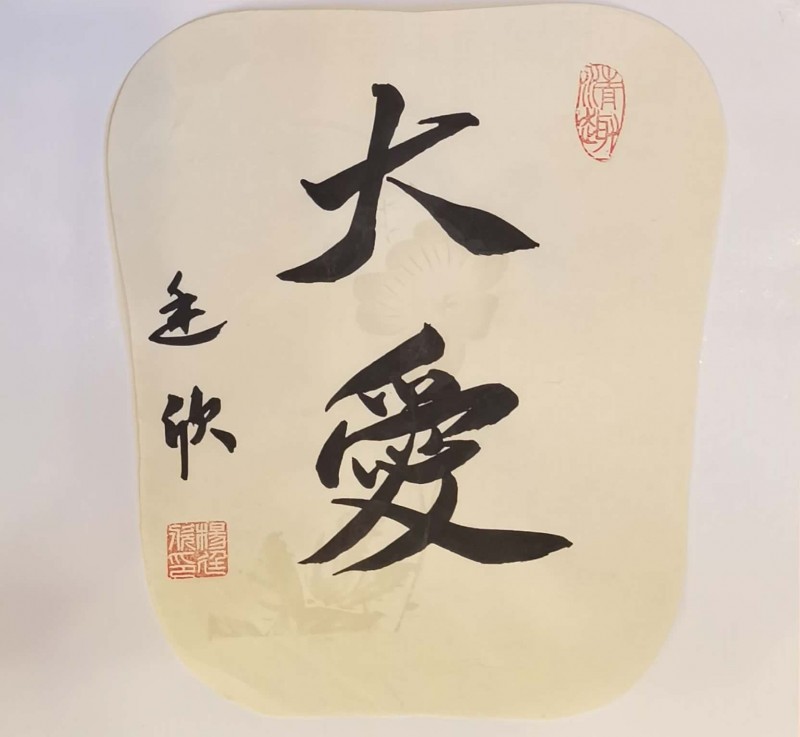 清趣
大愛
廷欣
楊廷欣印